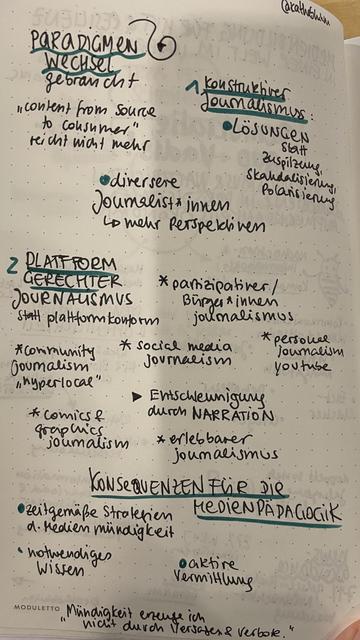 PARADIGMEN
WECHSEL
gebraucht
„content from source
to consumer"
reicht nicht mehr
1 Konstruktiver
Journalismus:
LÖSUNGEN
statt
Zuspitzung,
Skandalisierung,
Polarisierung
diversere
Journalist*innen
↳ mehr Perspektiven
2 PLATTFORM
GERECHTER
JOURNALISMUS
statt plattformkonform
* partizipativer/
Bürger*innen
journalismus
* community
journalism
"hyperlocal"
* social media
journalism
* personal
journalism
youtube
▶ Entschleunigung
durch NARRATION
* comics &
graphics
journalism
* erlebbarer
journalismus
KONSEQUENZEN FÜR DIE
MEDIENPÄDAGOGIK
zeitgemäße Strategien
d. Medienmündigkeit
notwendiges
Wissen
aktive
Vermittlung
MODULETTO
„Mündigkeit erzeuge ich
nicht durch Verbote."